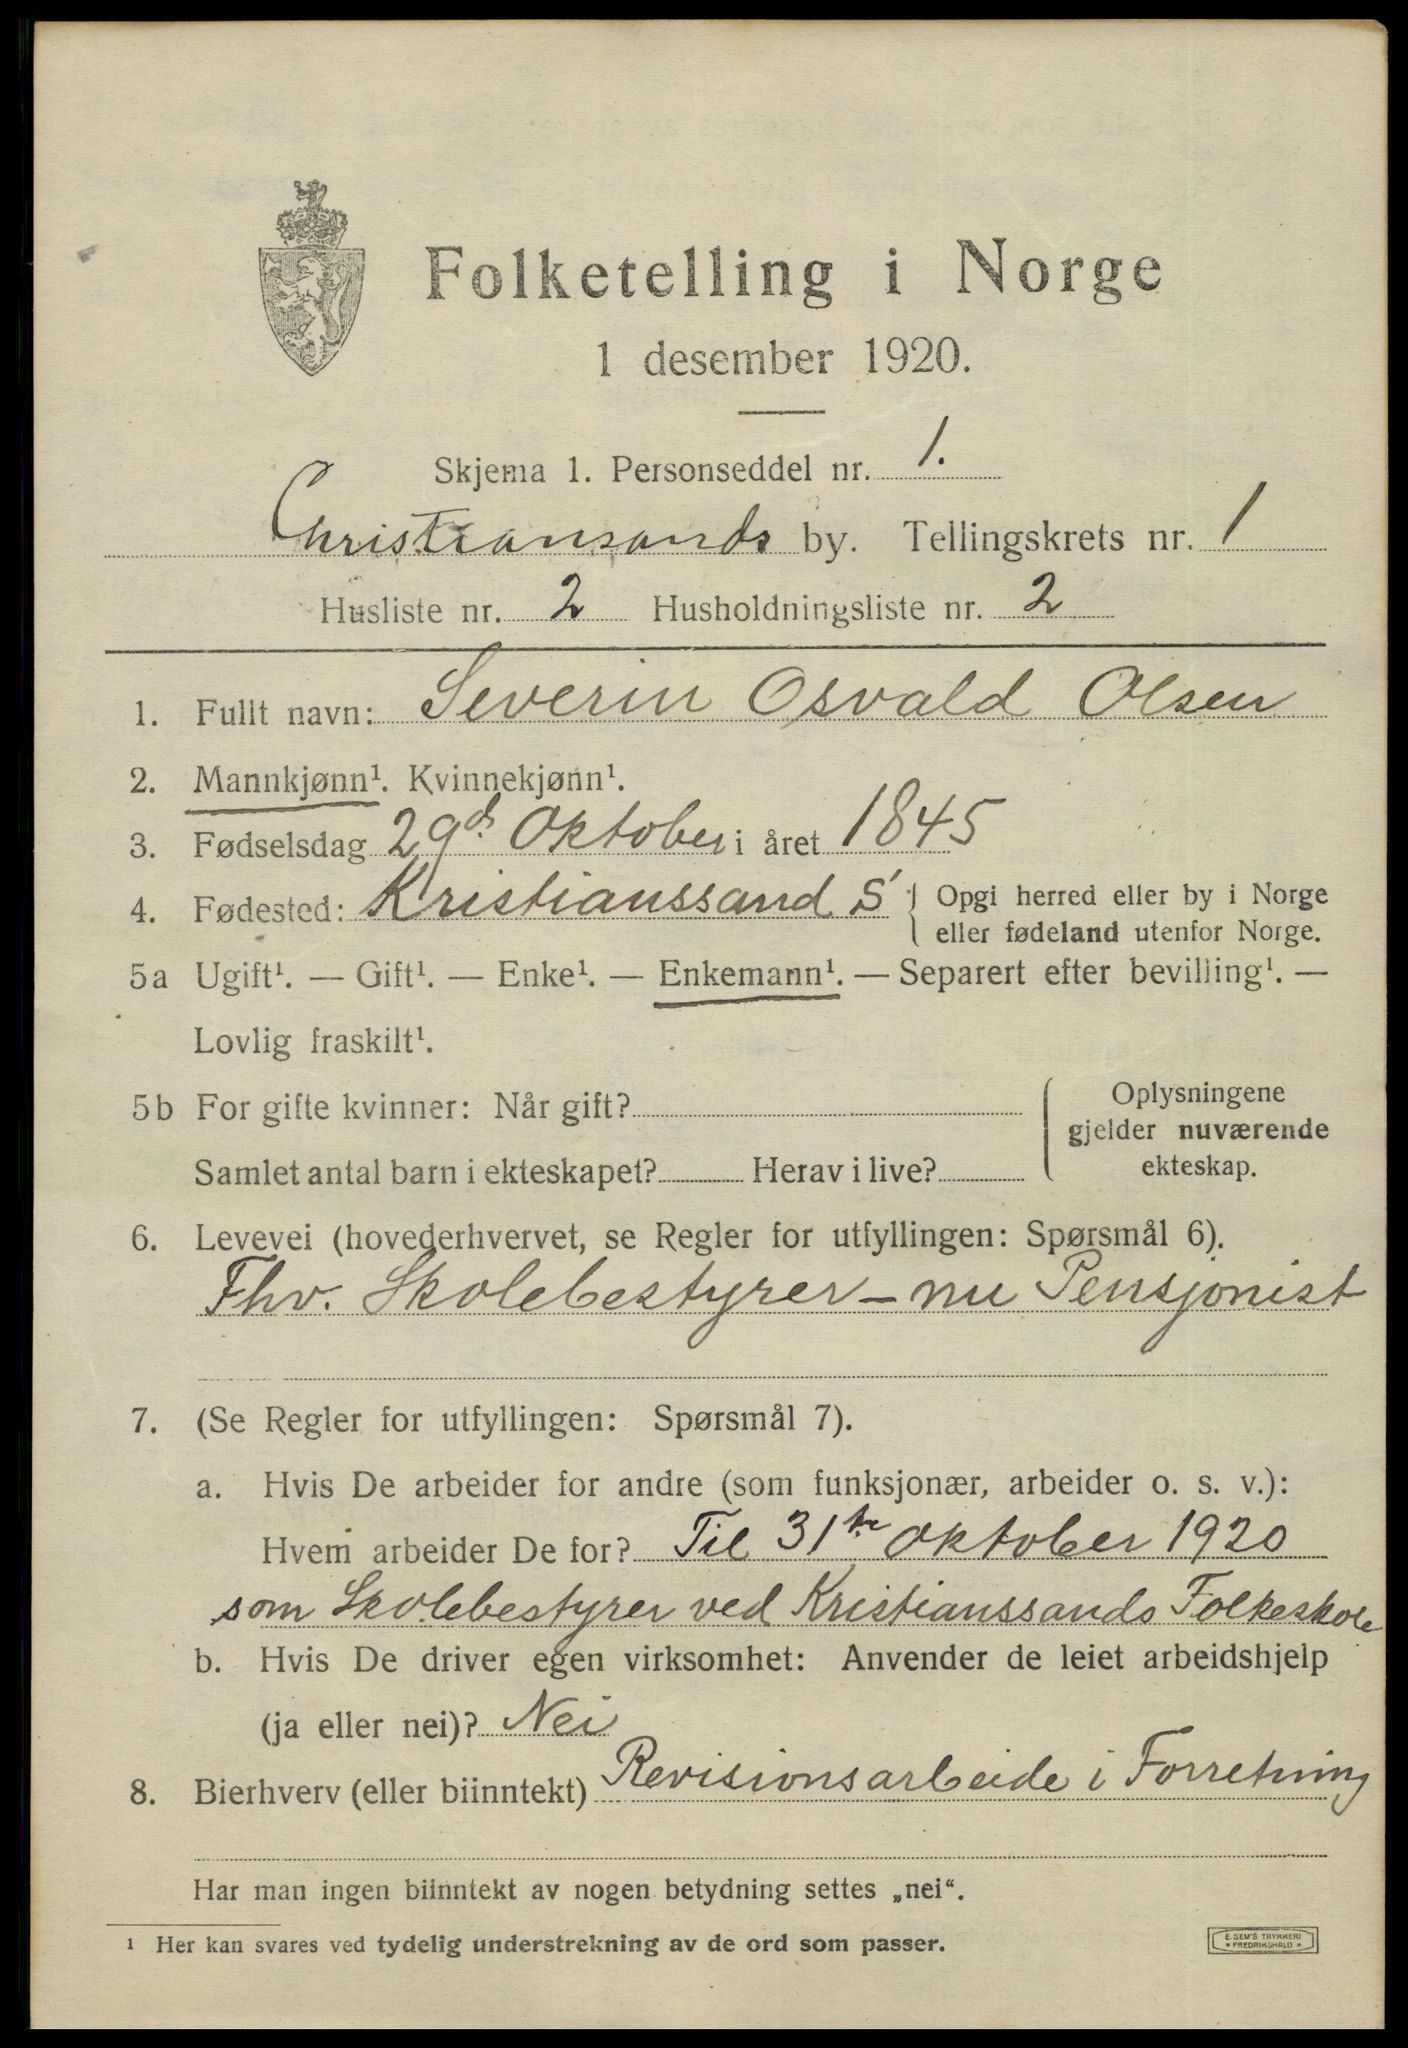 Folketelling i Norge
1 desember 1920.
Skjema 1. Personseddel nr. 1.
Christiansands by. Tellingskrets nr. 1
Husliste nr. 2 Husholdningsliste nr. 2
1. Fullt navn: Severin Osvald Olsen
2. Mannkjønn¹. Kvinnekjønn¹.
3. Fødselsdag 29de Oktober i året 1845
4. Fødested: Kristianssand S { Opgi herred eller by i Norge
eller fødeland utenfor Norge.
5a Ugift¹. — Gift¹. — Enke¹. — Enkemann¹. — Separert efter bevilling¹. —
Lovlig fraskilt¹.
5b For gifte kvinner: Når gift? { Oplysningene
gjelder nuværende
ekteskap.
Samlet antal barn i ekteskapet? Herav i live?
6. Levevei (hovederhvervet, se Regler for utfyllingen: Spørsmål 6).
Fhv. Skolebestyrer – nu Pensjonist
7. (Se Regler for utfyllingen: Spørsmål 7).
a. Hvis De arbeider for andre (som funksjonær, arbeider o. s. v.):
Hvem arbeider De for? Til 31te Oktober 1920
som Skolebestyrer ved Kristianssands Folkeskole
b. Hvis De driver egen virksomhet: Anvender de leiet arbeidshjelp
(ja eller nei)? Nei
8. Bierhverv (eller biinntekt) Revisionsarbeide i Forretning
Har man ingen biinntekt av nogen betydning settes „nei“.
¹ Her kan svares ved tydelig understrekning av de ord som passer.
E. SEM'S TRYKKERI
• FREDRIKSHALD •